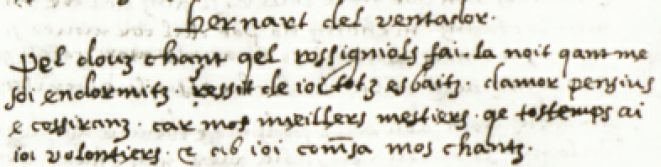 bernart del ventador.
Pel douz chant qel rossigniols fai. la noit qant me
soi endormitz. ressit de ioi totz esbaitz. damor pensius
e cossiranz. car mos meillers mestiers. qe tostemps ai
ioi volontiers. e ab ioi comēsa mos chantz.